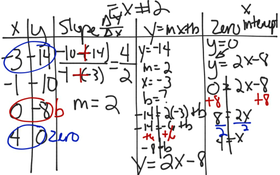 EX #2
x | y
-3 | -14
-1 | -10
0 | -8 b
4 | 0 zero
Slope Δy/Δx
-10-(-14)/-1-(-3) = 4/2
m = 2
y=mx+b
y=-14
m=2
x=-3
b=?
-14=2(-3)+b
-14=-6+b
+6 +6
-8=b
y=2x-8
Zero x intercept
y=0
y=2x-8
0=2x-8
+8 +8
8=2x
2 2
4=x